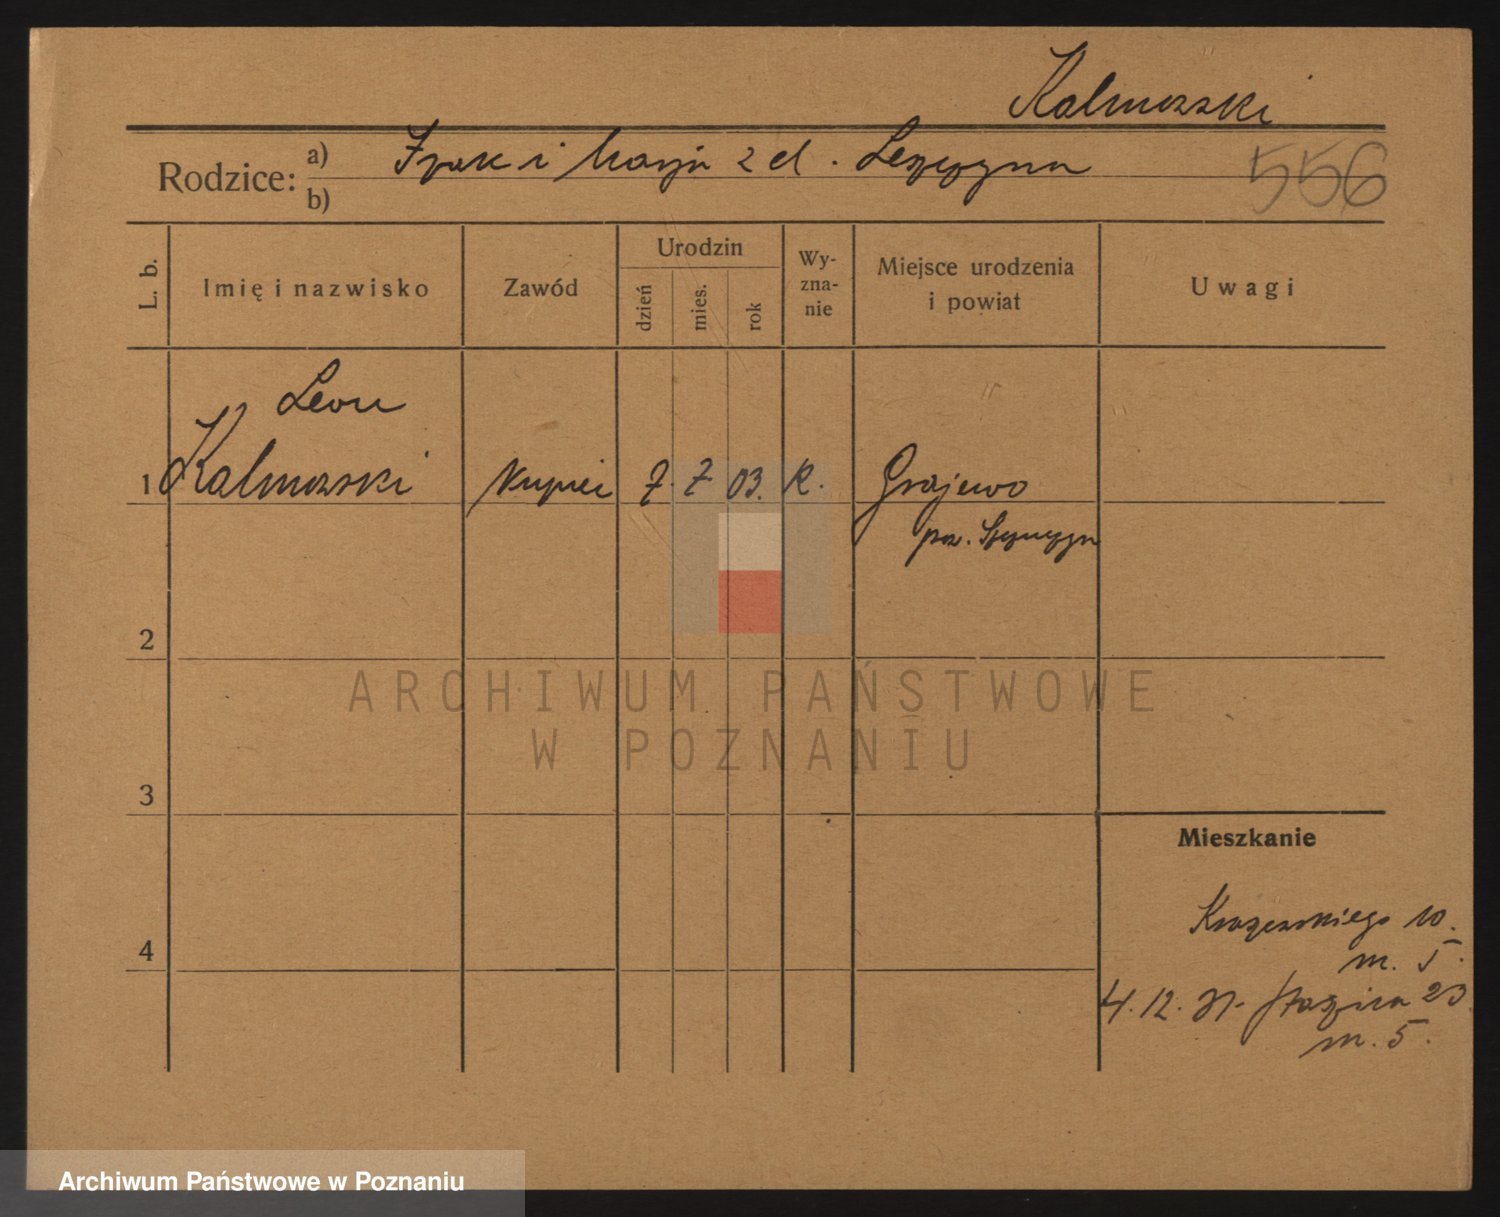 Kalmowski
Rodzice: a) Izak i Marja z d. Leszczyna
b)
556
L. b.
Imię i nazwisko
Zawód
Urodzin
dzień
mies.
rok
Wy-
zna-
nie
Miejsce urodzenia
i powiat
Uwagi
Leon
1 Kalmowski kupiec 7. 7. 03. R. Grajewo
pow. Szczuczyn
2
3
4
ARCHIWUM PAŃSTWOWE
W POZNANIU
Mieszkanie
Kraszewskiego 10.
m. 5.
4.12.31. Staszica 23
m. 5.
Archiwum Państwowe w Poznaniu